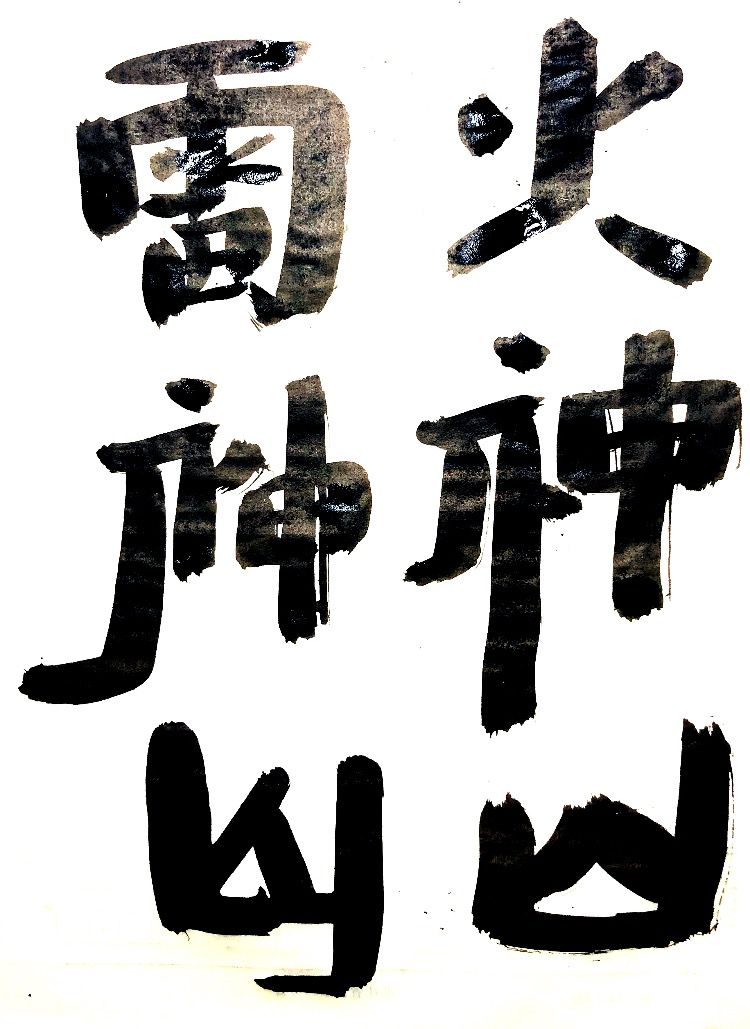 火神山
雷神山